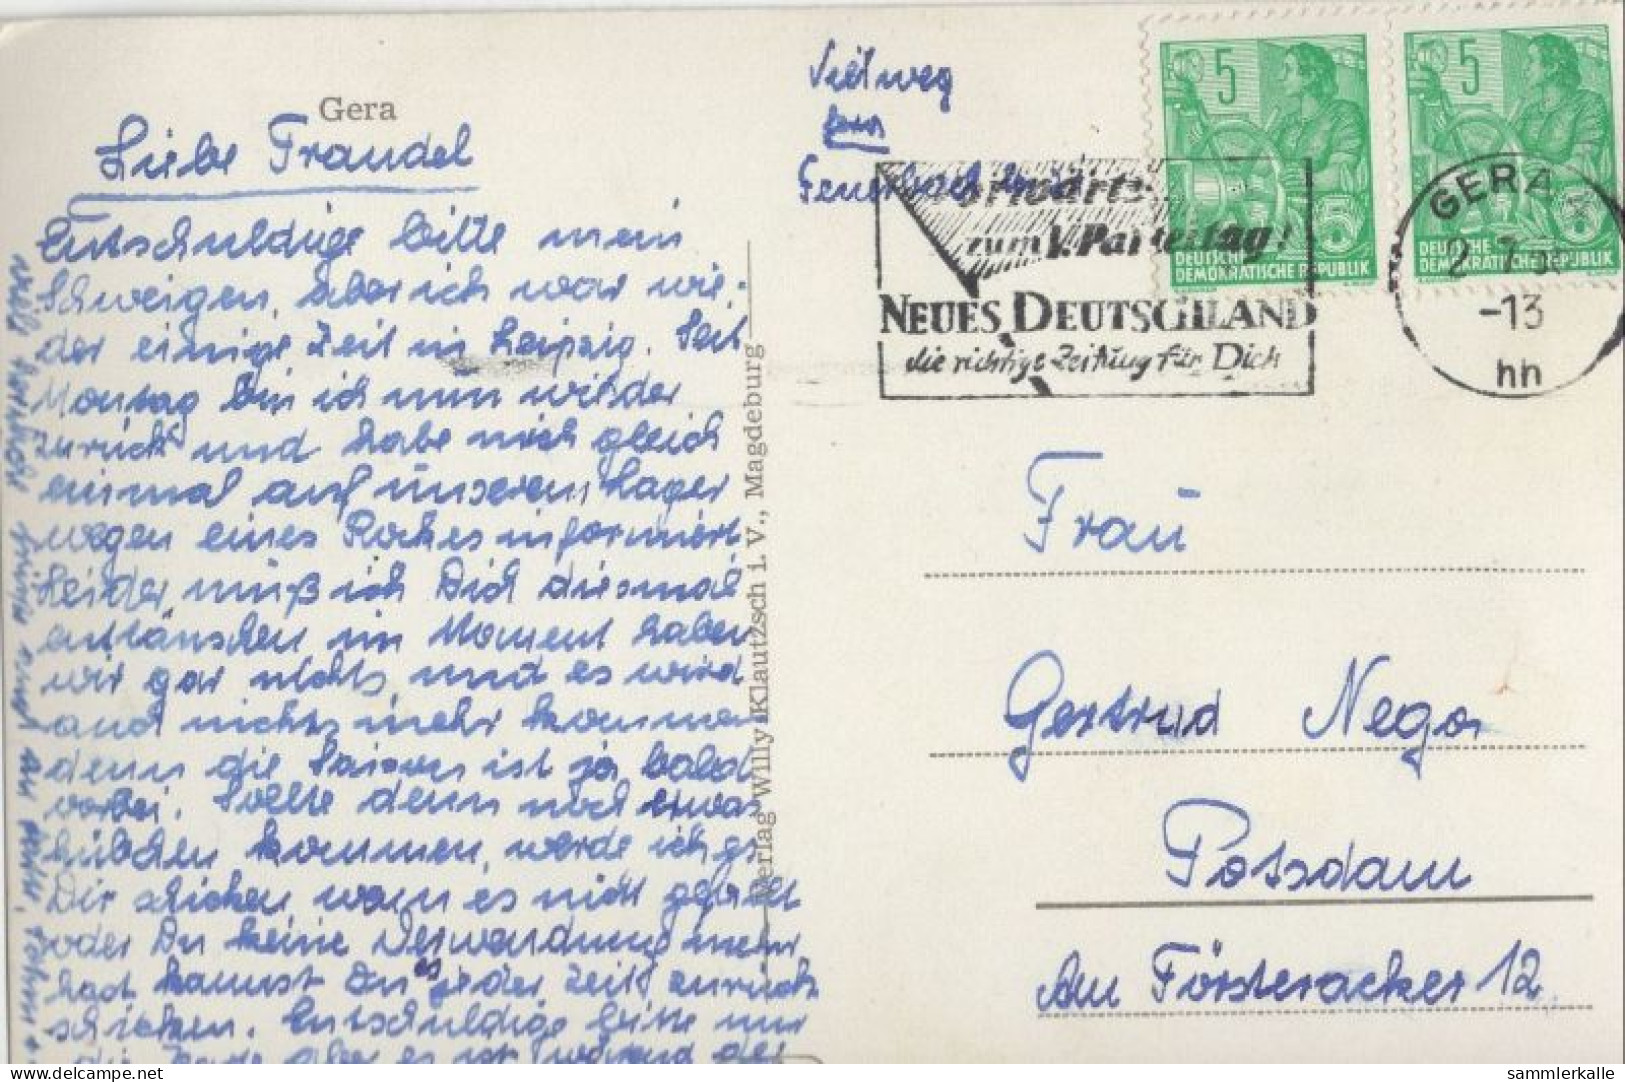 Gera
Liebe Traudel
Entschuldige bitte mein
Schweigen, aber ich war wie-
der einige Zeit in Leipzig. Seit
Montag bin ich nun wieder
zurück und habe mich gleich
einmal auf unserem Lager
wegen eines Rockes informiert
Leider muß ich Dich diesmal
enttäuschen im Moment haben
wir gar nichts und es wird
auch nichts mehr kommen
denn die Saison ist ja bald
vorbei. Sollte denn noch etwas
hübschen kommen, werde ich's
Dir schicken wenn es nicht gefällt
oder Du keine Verwendung mehr
hast kannst Du es jeder Zeit zurück
schicken. Entschuldige bitte nur
die Karte aber es ist während der
Verlag Willy Klautzsch i. V., Magdeburg
Feuerbach
5
DEUTSCHE
DEMOKRATISCHE REPUBLIK
5
5
DEUTSCHE
DEMOKRATISCHE REPUBLIK
5
Vorwärts
zum V. Parteitag!
NEUES DEUTSCHLAND
die richtige Zeitung für Dich
GERA
-13
hh
Frau
Gertrud Nega
Potsdam
Am Försteracker 12
delcampe.net
sammlerkalle